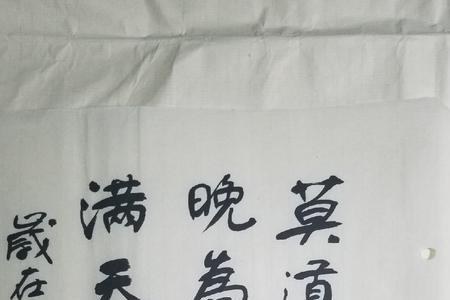 莫道
晚為
满天
歲在